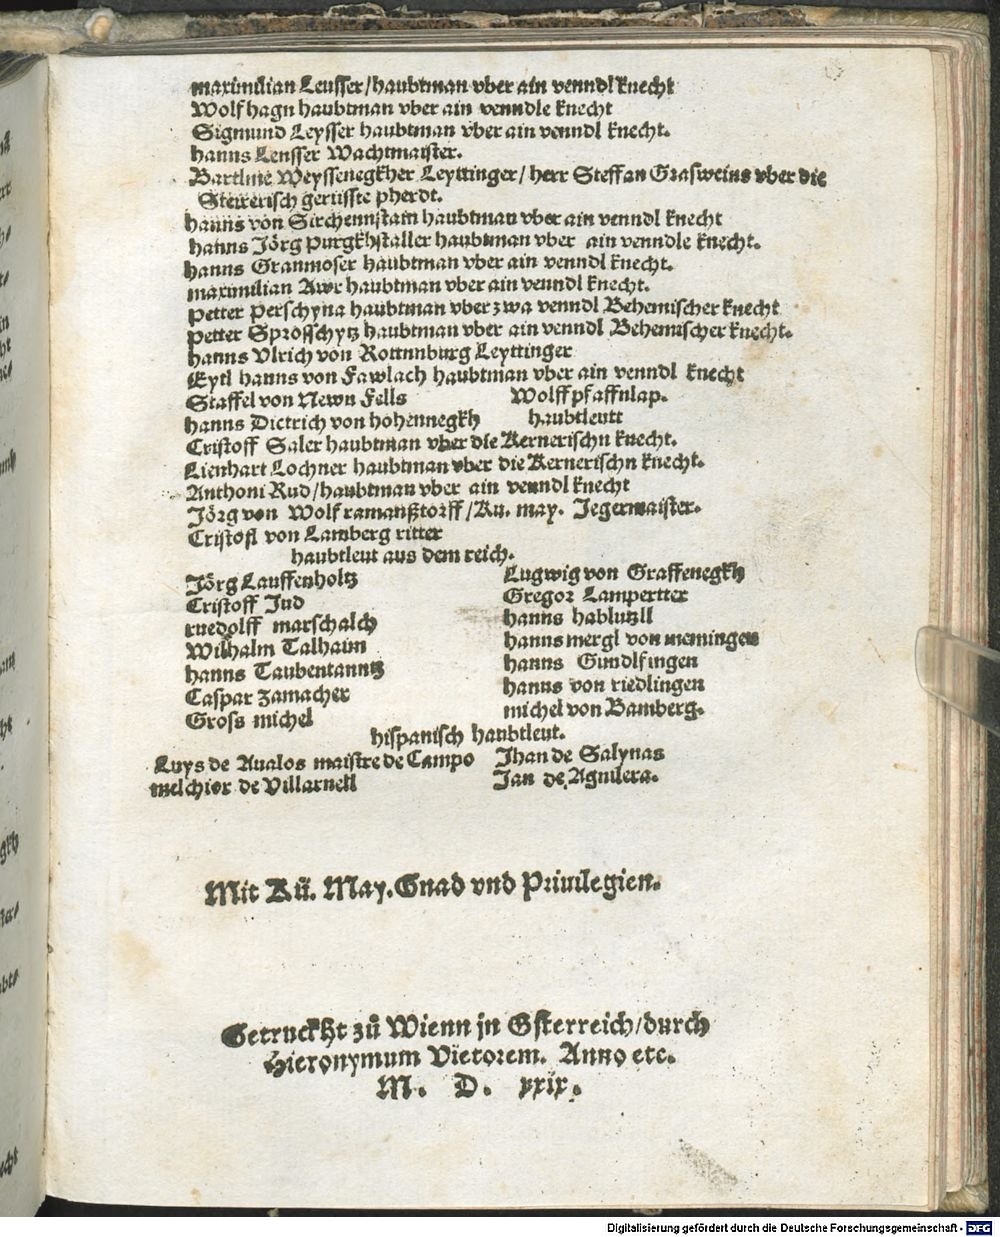 maximilian Leusser/haubtman vber ain venndl knecht
Wolf hagn haubtman vber ain venndle knecht
Sigmund Leysser haubtman vber ain venndl knecht.
hanns Lensser Wachtmaister.
Bartlme Weyssenegkher Leyttinger/herr Steffan Grasweins vber die
Steirerisch gerüsste pherdt.
hanns von Sirchennstain haubtman vber ain venndl knecht
hanns Jörg purgkhstaller haubtman vber ain venndle knecht.
hanns Granmoser haubtman vber ain venndl knecht.
maximilian Awr haubtman vber ain venndl knecht.
petter perschyna haubtman vber zwa venndl Behemischer knecht
petter Sprosschytz haubtman vber ain venndl Behemischer knecht.
hanns Vlrich von Rottnnburg Leyttinger
Eytl hanns von Fawlach haubtman vber ain venndl knecht
Staffel von Newn Fells Wolff pfaffnlap.
hanns Dietrich von hohennegkh haubtleutt
Cristoff Saler haubtman vber die Kernerischn knecht.
Lienhart Lochner haubtman vber die Kernerischn knecht.
Anthoni Rud/haubtman vber ain venndl knecht
Jörg von Wolf ramanßtorff/Ku. may. Jegermaister.
Cristofl von Lamberg ritter
haubtleut aus dem reich.
Jörg Lauffenholtz
Cristoff Jud
ruedolff marschalch
Wilhalm Talhaim
hanns Taubentanntz
Caspar zamacher
Gross michel
Lugwig von Graffenegkh
Gregor Lampertter
hanns hablutzll
hanns mergl von memingen
hanns Gundlfingen
hanns von riedlingen
michel von Bamberg.
hispanisch haubtleut.
Luys de Aualos maistre de Campo Jhan de Salynas
melchior de Villarnell Jan de Agnilera.
Mit Kü. May. Gnad vnd Priuilegien.
Getruckht zů Wienn jn Osterreich/durch
Hieronymum Vietorem. Anno etc.
M. D. xxix.
Digitalisierung gefördert durch die Deutsche Forschungsgemeinschaft - DFG